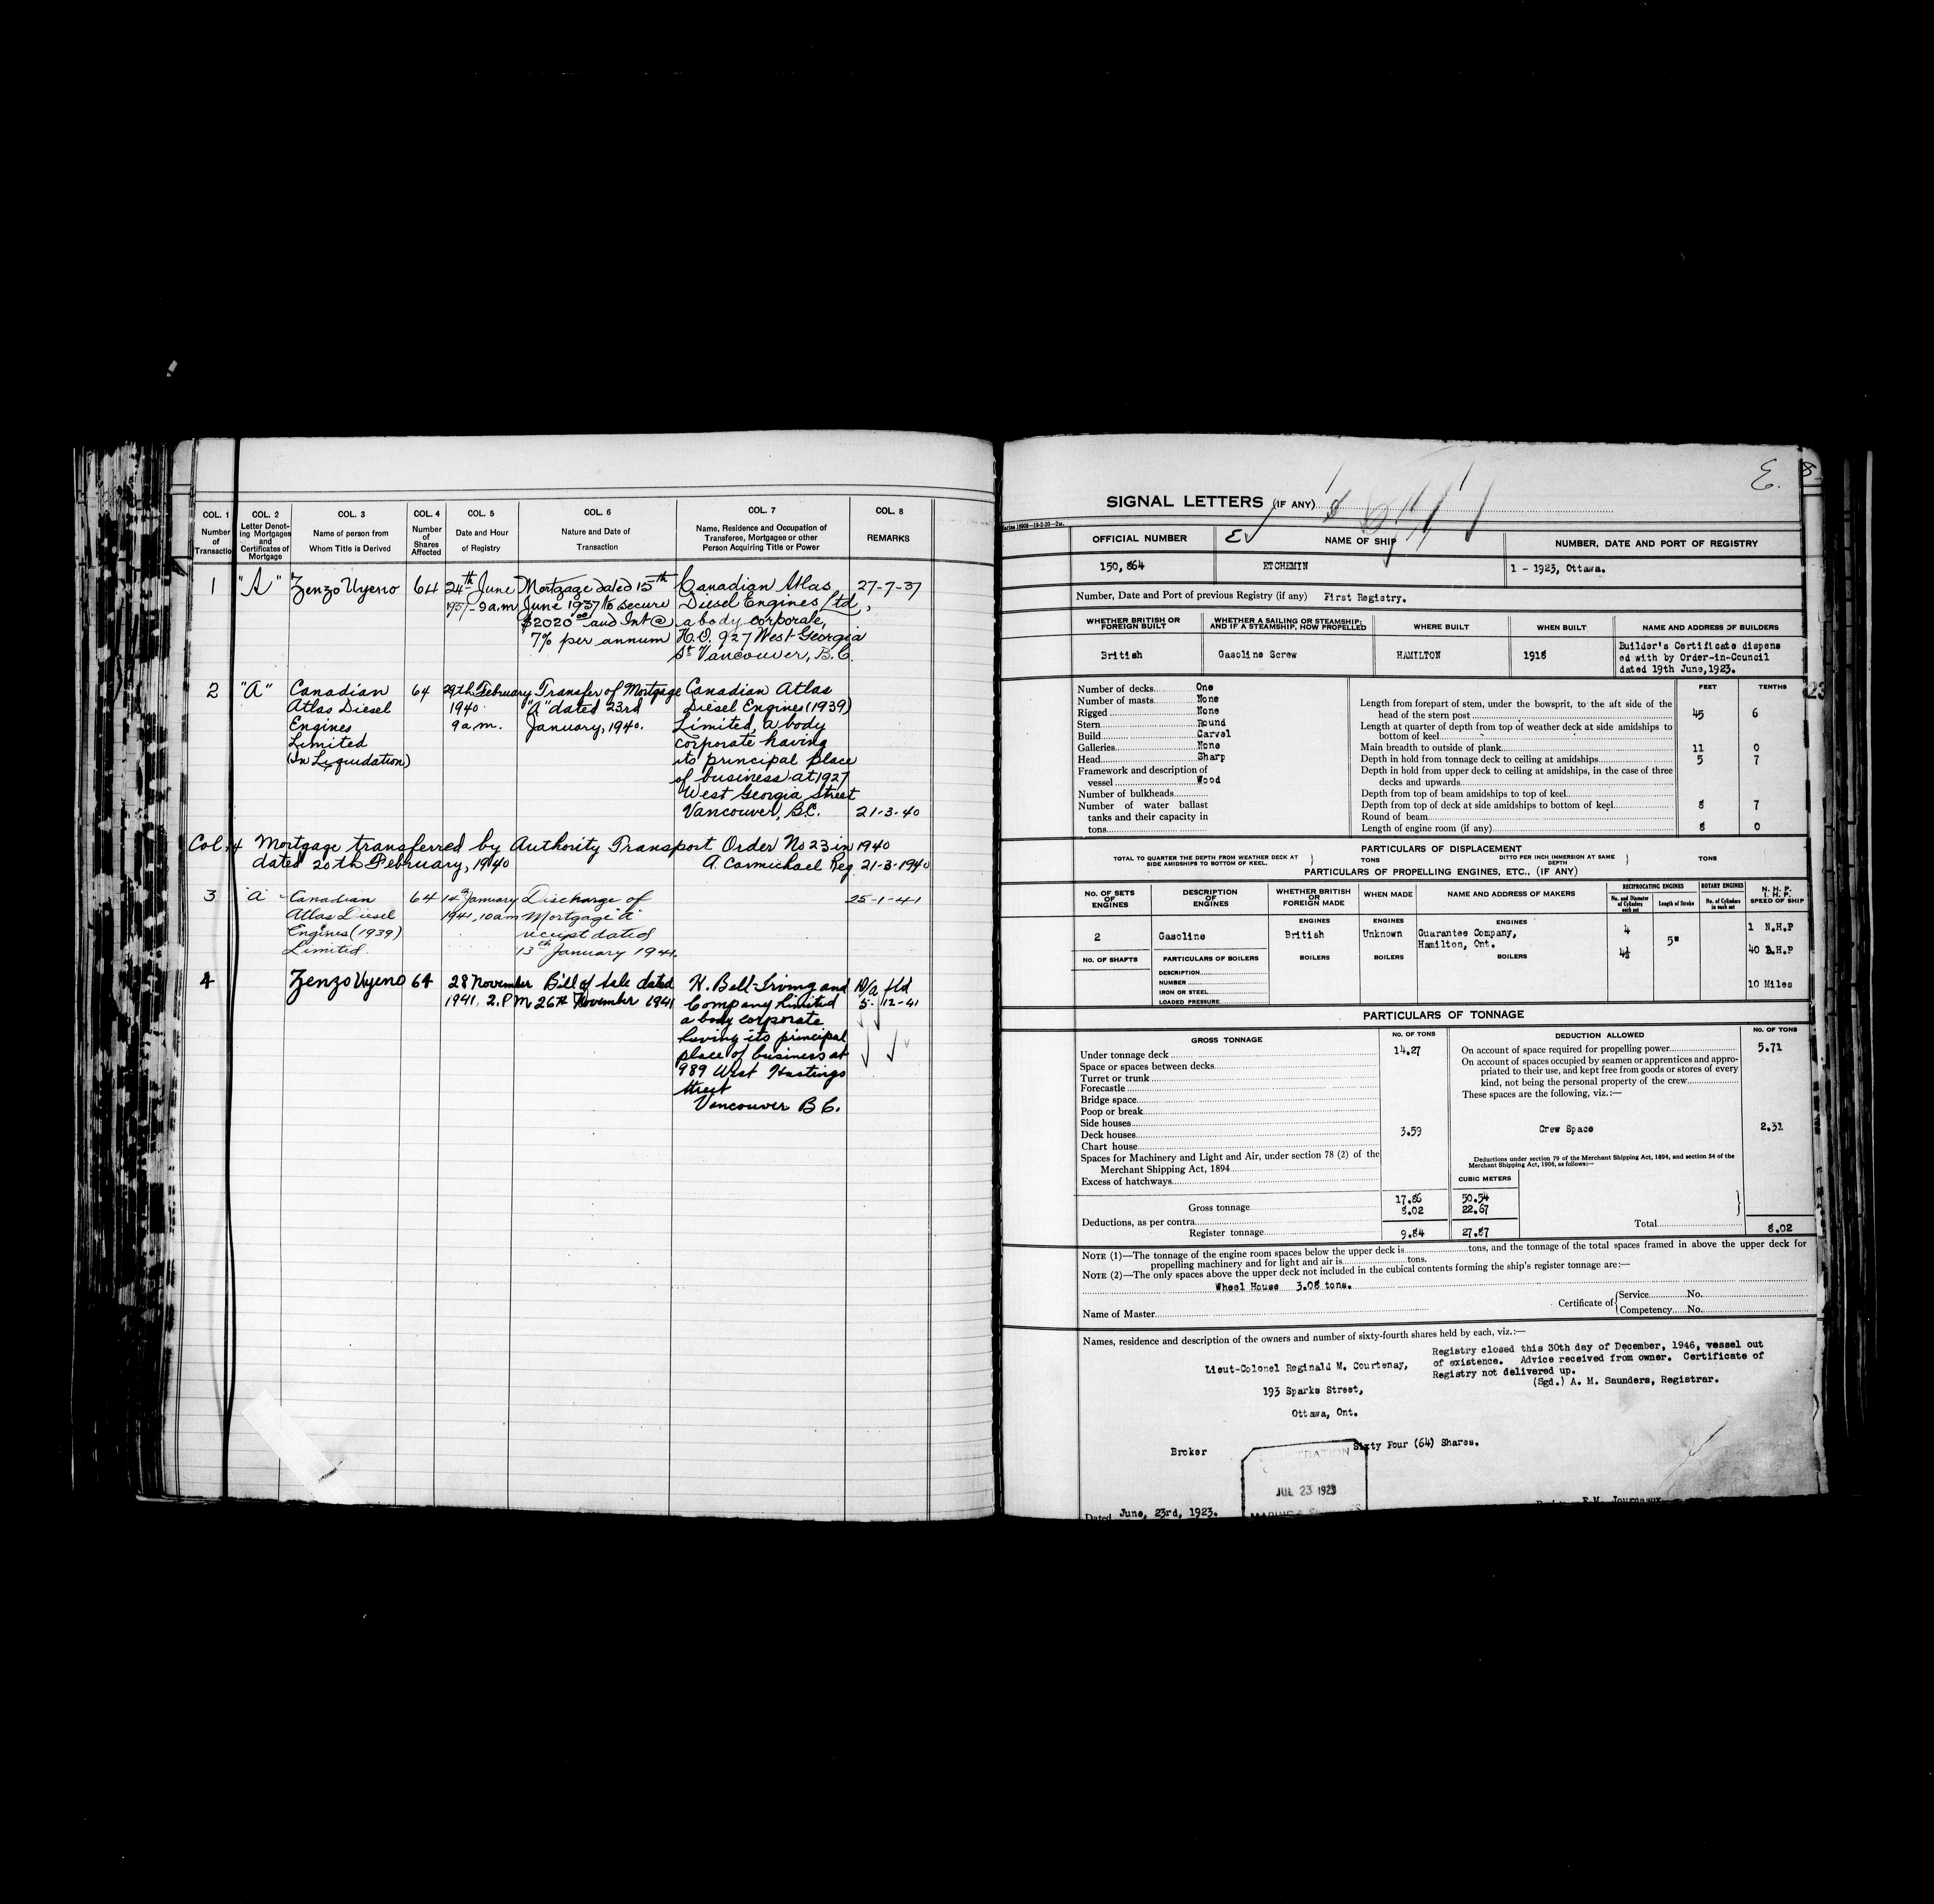 COL. 1 COL. 2 COL. 3 COL. 4 COL. 5 COL. 6 COL. 7 COL. 8
Number of Transaction
Letter Denoting Mortgages and Certificates of Mortgage
Name of person from Whom Title is Derived
Number of Shares Affected
Date and Hour of Registry
Nature and Date of Transaction
Name, Residence and Occupation of Transferee, Mortgagee or other Person Acquiring Title or Power
REMARKS
1 "A" Zenzo Uyeno 64 24th June Mortgage dated 15th Canadian Atlas 27-7-37
1937-9a.m June 1937 to secure Diesel Engines Ltd,
$2020.00 and Int @ a body corporate,
7% per annum H.O. 927 West Georgia
St Vancouver, B.C.
2 "A" Canadian 64 29th February Transfer of Mortgage Canadian Atlas
Atlas Diesel 1940 "A" dated 23rd Diesel Engines (1939)
Engines 9a.m. January, 1940. Limited, a body
Limited corporate having
(In Liquidation) its principal place
of business at 1927
West Georgia Street
Vancouver, B.C. 21-3-40
Col. 4 Mortgage transferred by Authority Transport Order No 23 in 1940
dated 20th February, 1940 A. Carmichael Reg. 21-3-1940
3 "A" Canadian 64 14th January Discharge of 25-1-41
Atlas Diesel 1941, 10am Mortgage "A"
Engines (1939) receipt dated
Limited. 13th January 1941.
4 Zenzo Uyeno 64 28 November Bill of Sale dated H. Bell-Irving and D/a fld
1941. 2.P.M 26th November 1941 Company Limited 5-12-41
a body corporate
having its principal
place of business at
989 West Hastings
Street
Vancouver B C.
E.
SIGNAL LETTERS (IF ANY)
OFFICIAL NUMBER NAME OF SHIP NUMBER, DATE AND PORT OF REGISTRY
150,864 ETCHEMIN 1 - 1923, Ottawa.
Number, Date and Port of previous Registry (if any) First Registry.
WHETHER BRITISH OR FOREIGN BUILT
WHETHER A SAILING OR STEAMSHIP; AND IF A STEAMSHIP, HOW PROPELLED
WHERE BUILT WHEN BUILT NAME AND ADDRESS OF BUILDERS
British Gasoline Screw HAMILTON 1918 Builder's Certificate dispens
ed with by Order-in-Council
dated 19th June,1923.
FEET TENTHS
Number of decks One
Number of masts None
Rigged None
Stern Round
Build Carvel
Galleries None
Head Sharp
Framework and description of
vessel Wood
Number of bulkheads
Number of water ballast
tanks and their capacity in
tons
Length from forepart of stem, under the bowsprit, to the aft side of the
head of the stern post 45 6
Length at quarter of depth from top of weather deck at side amidships to
bottom of keel
Main breadth to outside of plank 11 0
Depth in hold from tonnage deck to ceiling at amidships 5 7
Depth in hold from upper deck to ceiling at amidships, in the case of three
decks and upwards
Depth from top of beam amidships to top of keel
Depth from top of deck at side amidships to bottom of keel 8 7
Round of beam
Length of engine room (if any) 8 0
PARTICULARS OF DISPLACEMENT
TOTAL TO QUARTER THE DEPTH FROM WEATHER DECK AT SIDE AMIDSHIPS TO BOTTOM OF KEEL. } TONS DITTO PER INCH IMMERSION AT SAME DEPTH } TONS
PARTICULARS OF PROPELLING ENGINES, ETC., (IF ANY)
NO. OF SETS OF ENGINES
DESCRIPTION OF ENGINES
WHETHER BRITISH OR FOREIGN MADE
WHEN MADE
NAME AND ADDRESS OF MAKERS
RECIPROCATING ENGINES
No. and Diameter of Cylinders each set
Length of Stroke
ROTARY ENGINES
No. of Cylinders in each set
N. H. P.
I. H. P.
SPEED OF SHIP
ENGINES ENGINES ENGINES
2 Gasoline British Unknown Guarantee Company, 4 1 N.H.P
Hamilton, Ont. 4½ 5" 40 B.H.P
NO. OF SHAFTS PARTICULARS OF BOILERS BOILERS BOILERS BOILERS
DESCRIPTION
NUMBER
IRON OR STEEL
LOADED PRESSURE
10 Miles
PARTICULARS OF TONNAGE
GROSS TONNAGE NO. OF TONS DEDUCTION ALLOWED NO. OF TONS
Under tonnage deck 14.27
Space or spaces between decks
Turret or trunk
Forecastle
Bridge space
Poop or break
Side houses
Deck houses 3.59
Chart house
Spaces for Machinery and Light and Air, under section 78 (2) of the
Merchant Shipping Act, 1894
Excess of hatchways
On account of space required for propelling power 5.71
On account of spaces occupied by seamen or apprentices and appro-
priated to their use, and kept free from goods or stores of every
kind, not being the personal property of the crew
These spaces are the following, viz.:—
Crew Space 2.31
Deductions under section 79 of the Merchant Shipping Act, 1894, and section 54 of the
Merchant Shipping Act, 1906, as follows:—
CUBIC METERS
Gross tonnage 17.86 50.54
Deductions, as per contra 8.02 22.67
Register tonnage 9.84 27.87
Total 8.02
NOTE (1)—The tonnage of the engine room spaces below the upper deck is tons, and the tonnage of the total spaces framed in above the upper deck for
propelling machinery and for light and air is tons.
NOTE (2)—The only spaces above the upper deck not included in the cubical contents forming the ship's register tonnage are:—
Wheel House 3.08 tons.
Name of Master
Certificate of { Service No.
Competency No.
Names, residence and description of the owners and number of sixty-fourth shares held by each, viz.:—
Lieut-Colonel Reginald M. Courtenay,
193 Sparks Street,
Ottawa, Ont.
Broker Sixty Four (64) Shares.
Registry closed this 30th day of December, 1946, vessel out
of existence. Advice received from owner. Certificate of
Registry not delivered up.
(Sgd.) A. M. Saunders, Registrar.
JUL 23 1923
Dated June, 23rd, 1923.